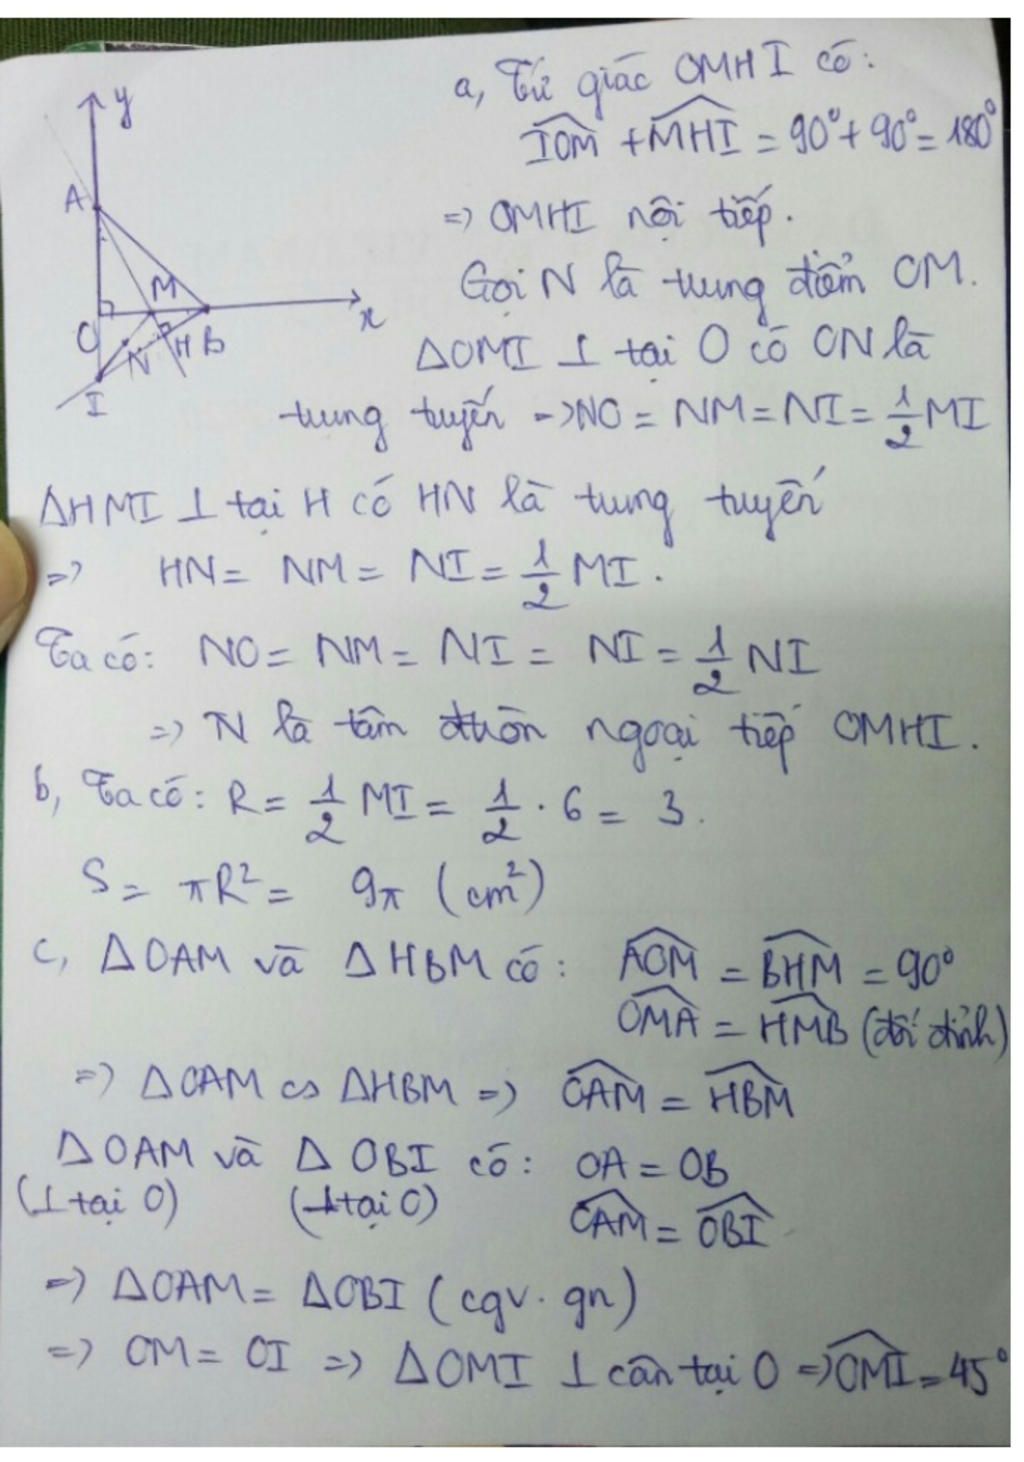 a, Tứ giác OMHI có:
y
IOM + MHI = 90° + 90° = 180°
A
=> OMHI nội tiếp.
M
Gọi N là trung điểm OM.
x
O
N H B
ΔOMI ⊥ tại O có ON là
I
trung tuyến => NO = NM = NI = 1/2 MI
ΔHMI ⊥ tại H có HN là trung tuyến
=> HN = NM = NI = 1/2 MI.
Ta có: NO = NM = NI = NI = 1/2 NI
=> N là tâm đtròn ngoại tiếp OMHI.
b, Ta có: R = 1/2 MI = 1/2 . 6 = 3.
S = πR² = 9π (cm²)
c, ΔOAM và ΔHBM có: AOM = BHM = 90°
OMA = HMB (đối đỉnh)
=> ΔOAM ∽ ΔHBM => OAM = HBM
ΔOAM và ΔOBI có: OA = OB
(⊥ tại O) (⊥ tại O) OAM = OBI
=> ΔOAM = ΔOBI (cgv. gn)
=> OM = OI => ΔOMI ⊥ cân tại O => OMI = 45°